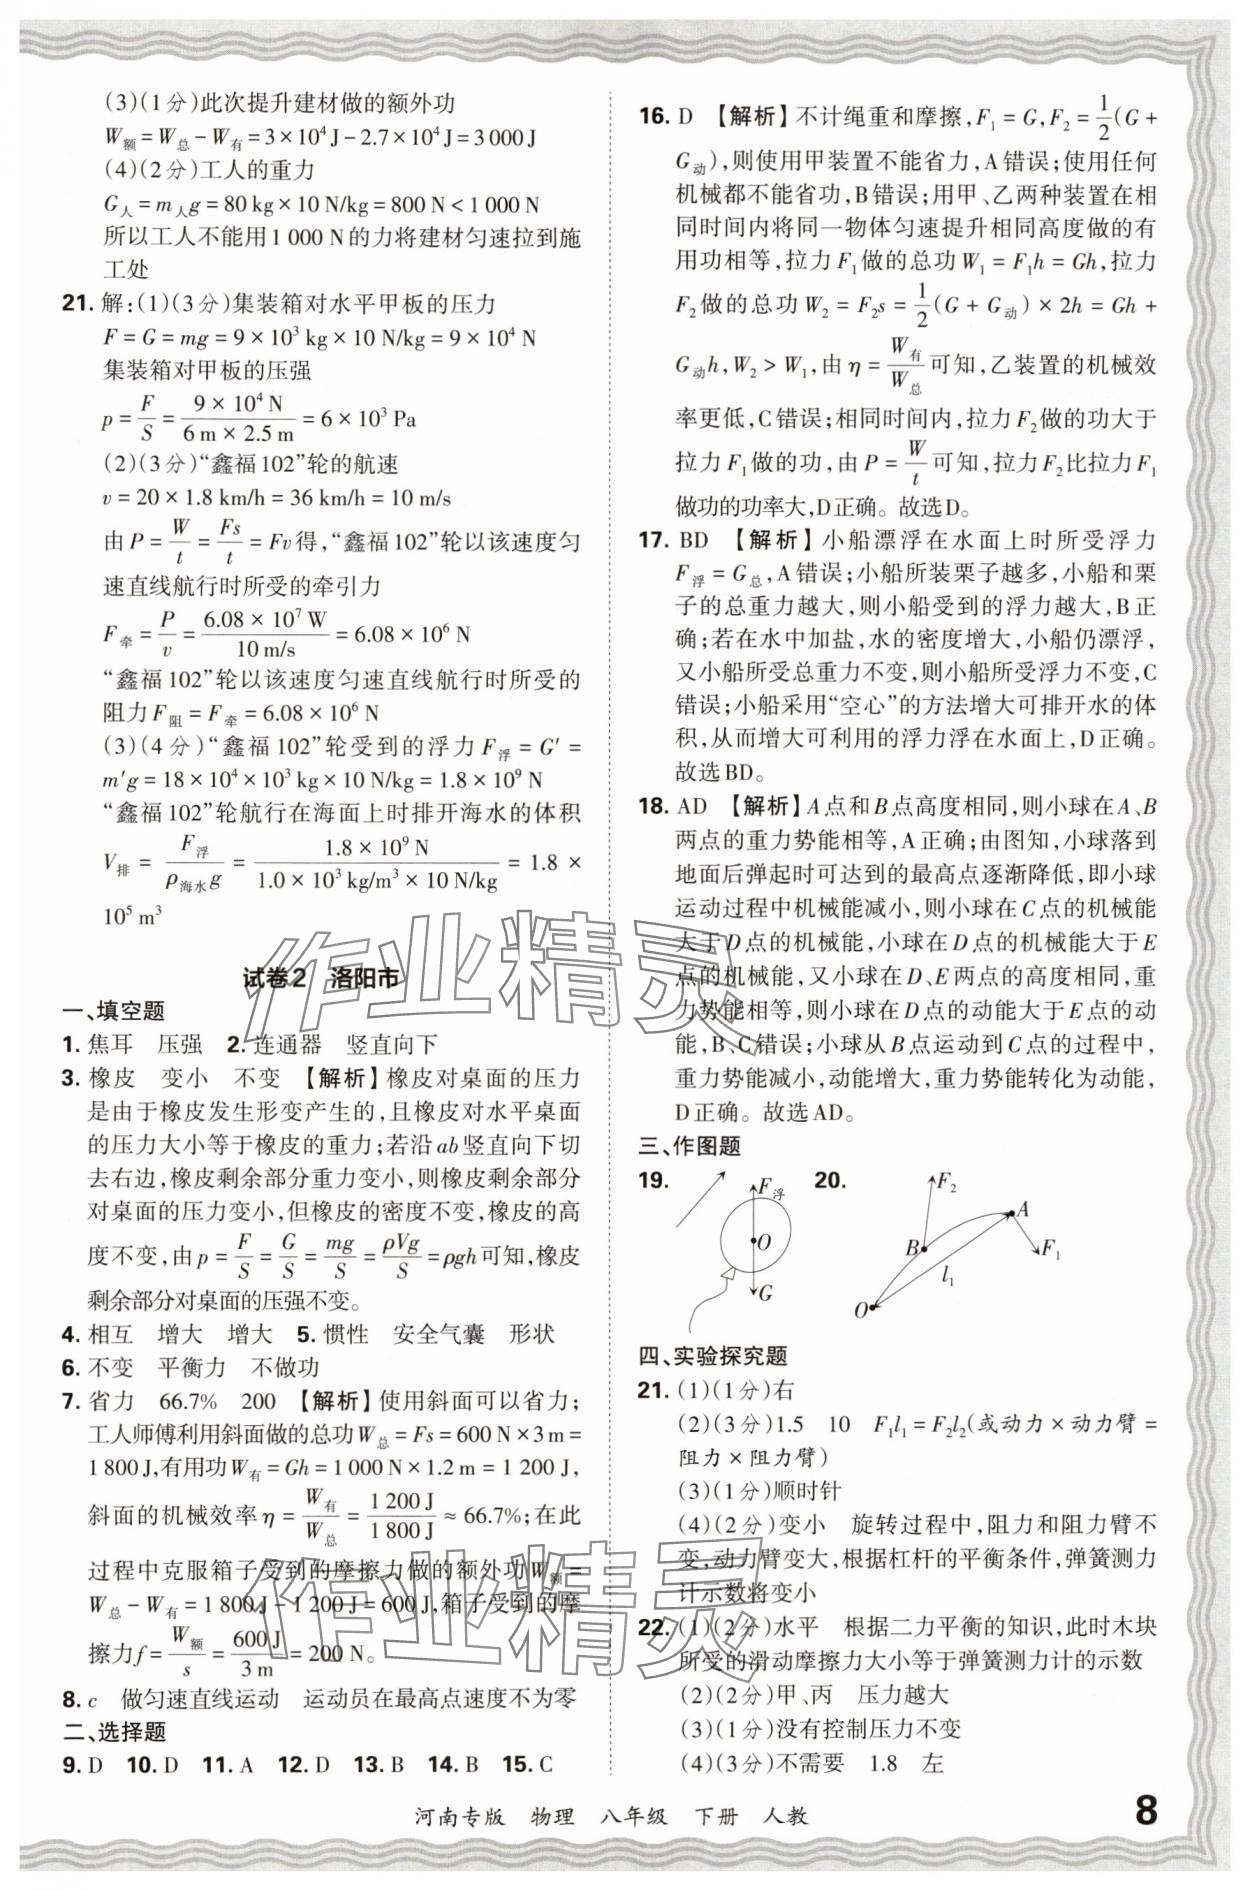 (3)(1分)此次提升建材做的额外功
W额=W总-W有=3×10⁴J-2.7×10⁴J=3 000 J
(4)(2分)工人的重力
G人=m人g=80 kg×10 N/kg=800 N<1 000 N
所以工人不能用1 000 N的力将建材匀速拉到施
工处
21. 解:(1)(3分)集装箱对水平甲板的压力
F=G=mg=9×10³ kg×10 N/kg=9×10⁴ N
集装箱对甲板的压强
p=F/S=9×10⁴ N/(6 m×2.5 m)=6×10³ Pa
(2)(3分)“鑫福102”轮的航速
v=20×1.8 km/h=36 km/h=10 m/s
由P=W/t=Fs/t=Fv得,“鑫福102”轮以该速度匀
速直线航行时所受的牵引力
F牵=P/v=6.08×10⁷ W/(10 m/s)=6.08×10⁶ N
“鑫福102”轮以该速度匀速直线航行时所受的
阻力F阻=F牵=6.08×10⁶ N
(3)(4分)“鑫福102”轮受到的浮力F浮=G′=
m′g=18×10⁴×10³ kg×10 N/kg=1.8×10⁹ N
“鑫福102”轮航行在海面上时排开海水的体积
V排=F浮/(ρ海水g)=1.8×10⁹ N/(1.0×10³ kg/m³×10 N/kg)=1.8×
10⁵ m³
试卷2 洛阳市
一、填空题
1. 焦耳 压强 2. 连通器 竖直向下
3. 橡皮 变小 不变 【解析】橡皮对桌面的压力
是由于橡皮发生形变产生的,且橡皮对水平桌面
的压力大小等于橡皮的重力;若沿ab竖直向下切
去右边,橡皮剩余部分重力变小,则橡皮剩余部分
对桌面的压力变小,但橡皮的密度不变,橡皮的高
度不变,由p=F/S=G/S=mg/S=ρVg/S=ρgh可知,橡皮
剩余部分对桌面的压强不变。
4. 相互 增大 增大 5. 惯性 安全气囊 形状
6. 不变 平衡力 不做功
7. 省力 66.7% 200 【解析】使用斜面可以省力;
工人师傅利用斜面做的总功W总=Fs=600 N×3 m=
1 800 J,有用功W有=Gh=1 000 N×1.2 m=1 200 J,
斜面的机械效率η=W有/W总=1 200 J/1 800 J≈66.7%;在此
过程中克服箱子受到的摩擦力做的额外功W额=
W总-W有=1 800 J-1 200 J=600 J,箱子受到的摩
擦力f=W额/s=600 J/3 m=200 N。
8. c 做匀速直线运动 运动员在最高点速度不为零
二、选择题
9. D 10. D 11. A 12. D 13. B 14. B 15. C
16. D 【解析】不计绳重和摩擦,F₁=G,F₂=1/2(G+
G动),则使用甲装置不能省力,A错误;使用任何
机械都不能省功,B错误;用甲、乙两种装置在相
同时间内将同一物体匀速提升相同高度做的有
用功相等,拉力F₁做的总功W₁=F₁h=Gh,拉力
F₂做的总功W₂=F₂s=1/2(G+G动)×2h=Gh+
G动h,W₂>W₁,由η=W有/W总可知,乙装置的机械效
率更低,C错误;相同时间内,拉力F₂做的功大于
拉力F₁做的功,由P=W/t可知,拉力F₂比拉力F₁
做功的功率大,D正确。故选D。
17. BD 【解析】小船漂浮在水面上时所受浮力
F浮=G总,A错误;小船所装栗子越多,小船和栗
子的总重力越大,则小船受到的浮力越大,B正
确;若在水中加盐,水的密度增大,小船仍漂浮,
又小船所受总重力不变,则小船所受浮力不变,C
错误;小船采用“空心”的方法增大可排开水的体
积,从而增大可利用的浮力浮在水面上,D正确。
故选BD。
18. AD 【解析】A点和B点高度相同,则小球在A、B
两点的重力势能相等,A正确;由图知,小球落到
地面后弹起时可达到的最高点逐渐降低,即小球
运动过程中机械能减小,则小球在C点的机械能
大于D点的机械能,小球在D点的机械能大于E
点的机械能,又小球在D、E两点的高度相同,重
力势能相等,所以小球在D点的动能大于E点的动
能,B、C错误;小球从B点运动到C点的过程中,
重力势能减小,动能增大,重力势能转化为动能,
D正确。故选AD。
三、作图题
19.
F浮
O
G
20.
F₂
A
B
F₁
l₁
O
四、实验探究题
21. (1)(1分)右
(2)(3分)1.5 10 F₁l₁=F₂l₂(或动力×动力臂=
阻力×阻力臂)
(3)(1分)顺时针
(4)(2分)变小 旋转过程中,阻力和阻力臂不
变,动力臂变大,根据杠杆的平衡条件,弹簧测力
计示数将变小
22. (1)(2分)水平 根据二力平衡的知识,此时木块
所受的滑动摩擦力大小等于弹簧测力计的示数
(2)(2分)甲、丙 压力越大
(3)(1分)没有控制压力不变
(4)(3分)不需要 1.8 左
河南专版 物理 八年级 下册 人教
8
作业精灵
作业精灵